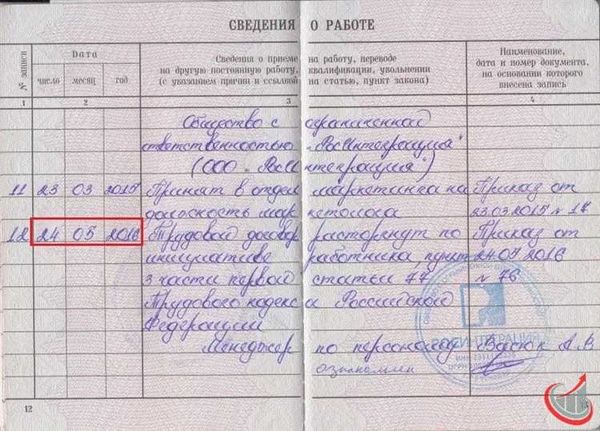 СВЕДЕНИЯ О РАБОТЕ
№ записи
Дата
число месяц год
Сведения о приеме на работу, переводе
на другую постоянную работу, квалификации, увольнении
(с указанием причин и ссылкой на статью, пункт закона)
Наименование,
дата и номер документа,
на основании которого
внесена запись
1 2 3 4
Общество с ограниченной
ответственностью "РосИнтеграция"
(ООО "РосИнтеграция")
11 23 03 2015 Принят в отдел маркетинга на Приказ от
должность маркетолога 23.03.2015 № 18
12 24 05 2016 Трудовой договор расторгнут по Приказ от
инициативе работника, пункт 24.05.2016
3 части первой статьи 77 № 76
Трудового кодекса Российской
Федерации
Менеджер по персоналу Васюк А.В
ознакомлен
12